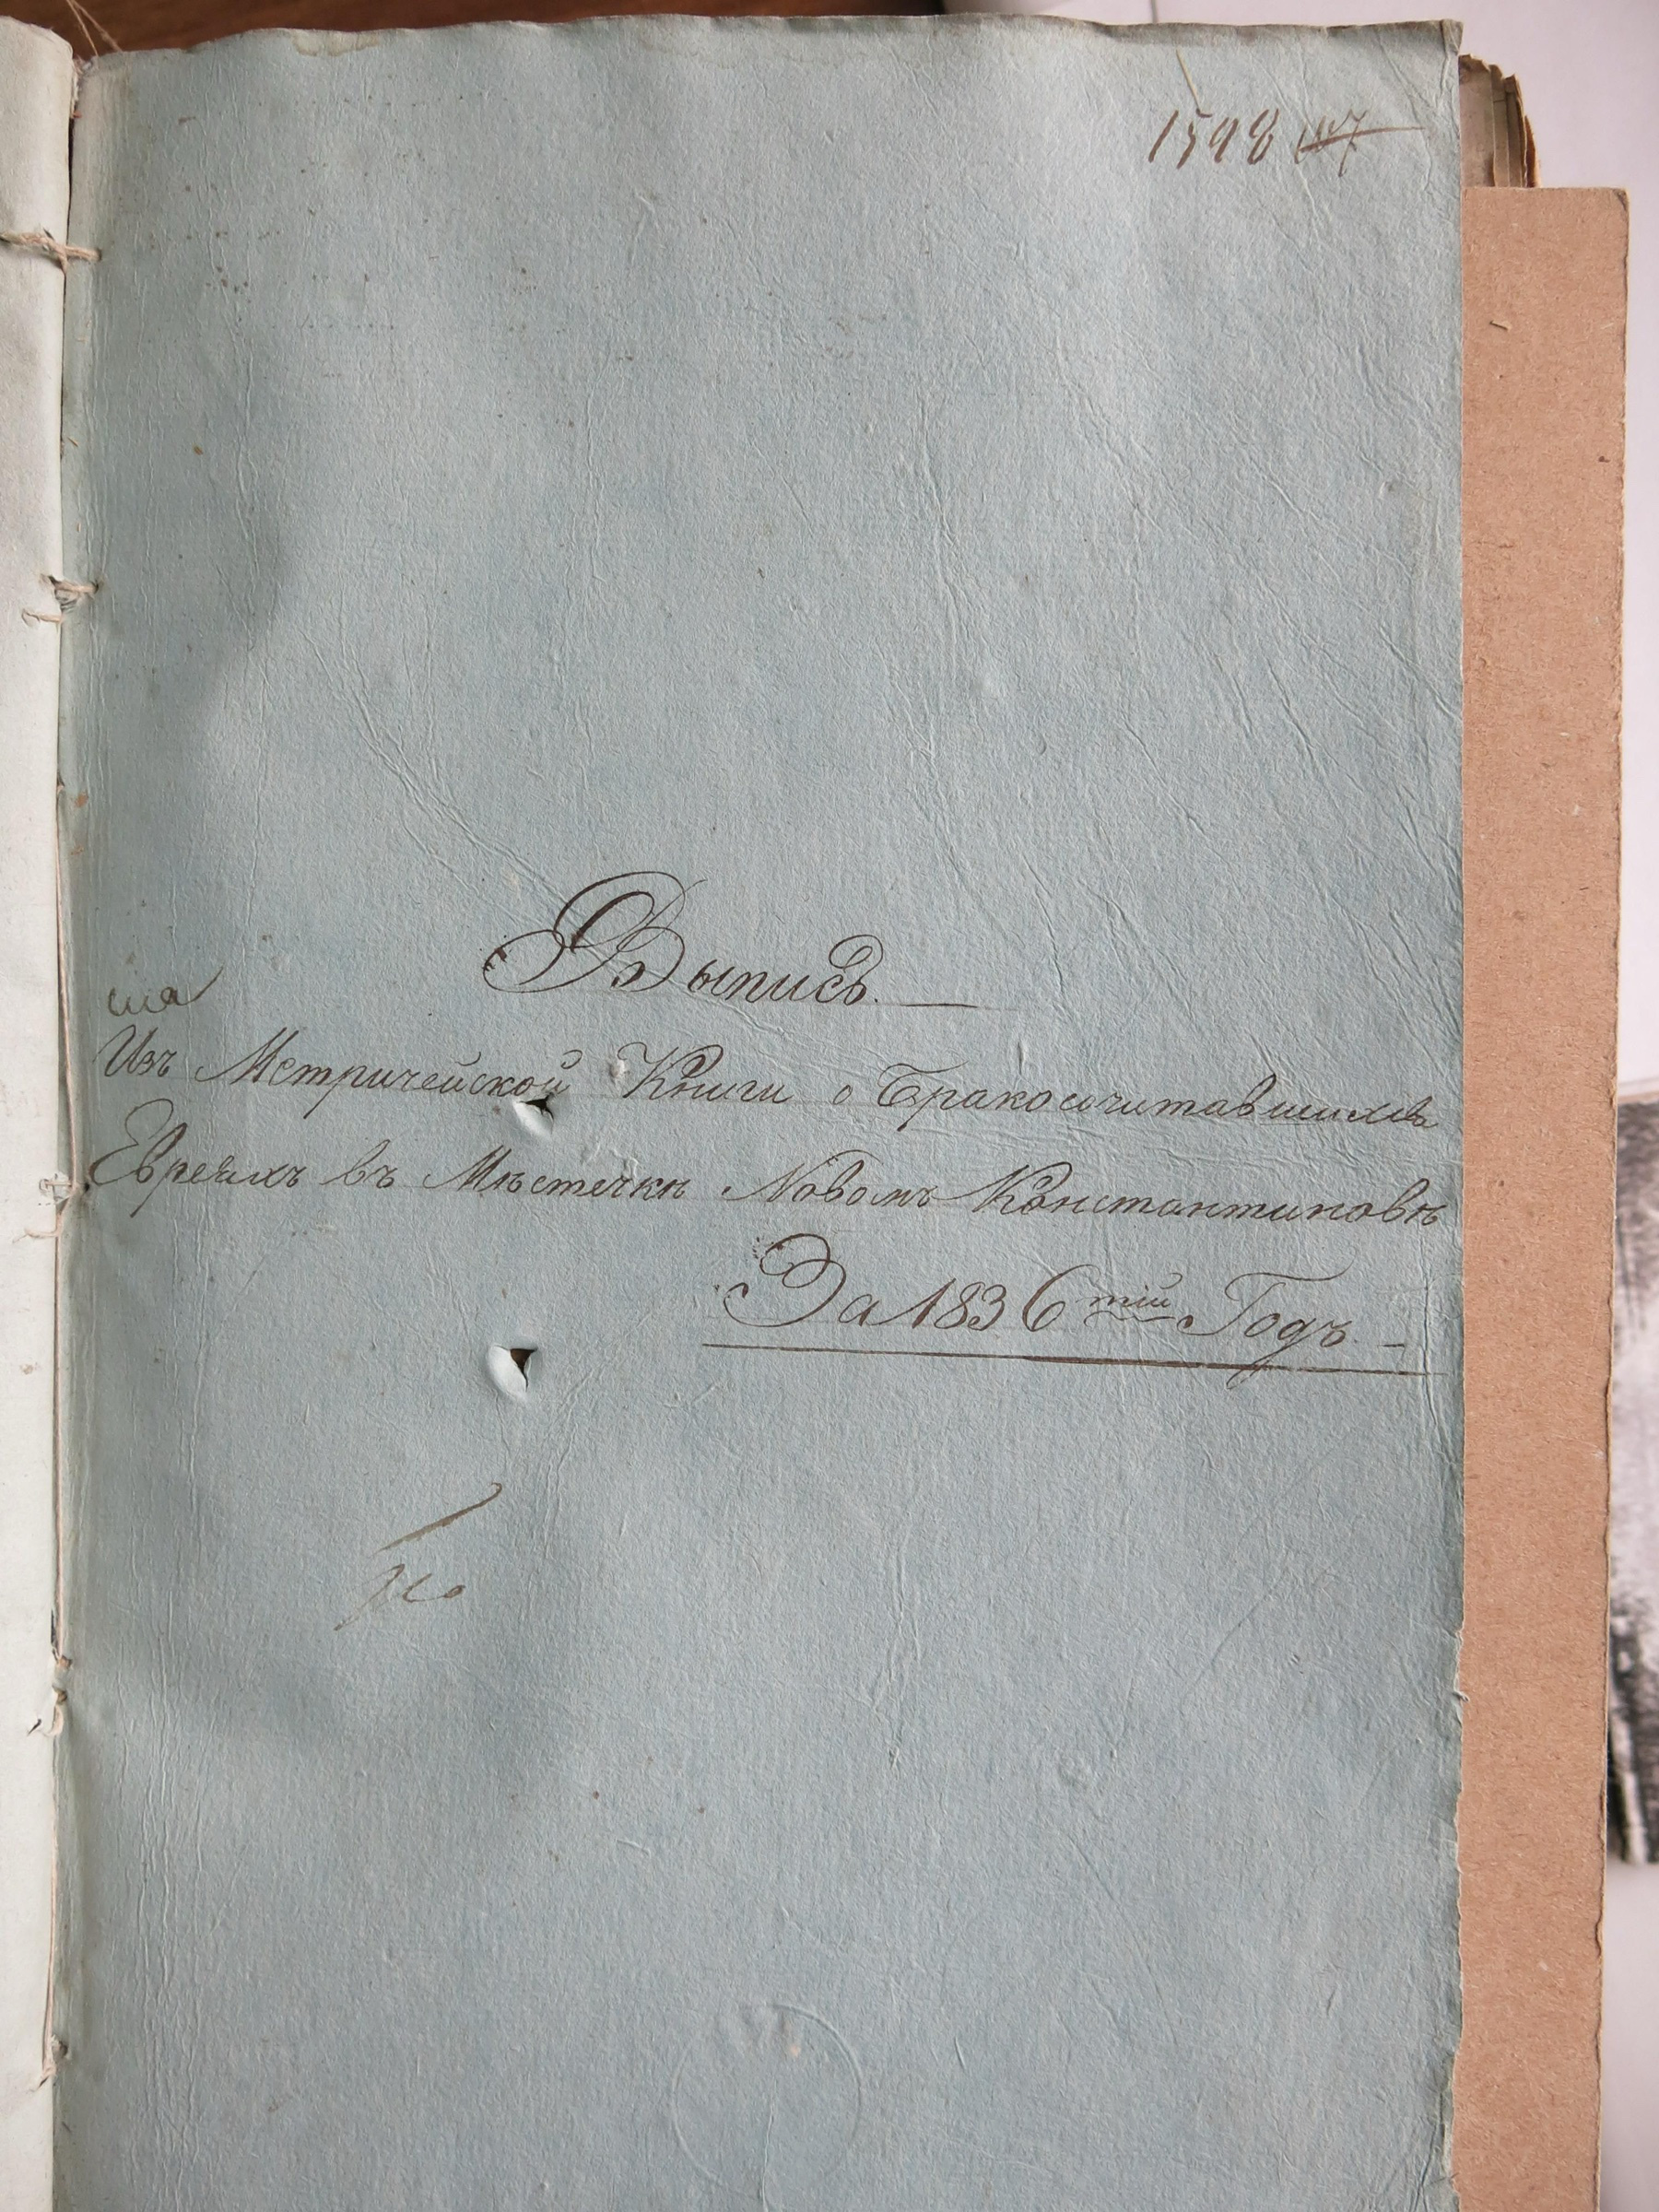 1598
Выпись.
Изъ Метрической Книги о Бракосочитавшихся
Евреяхъ въ Мѣстечкѣ Новомъ Константиновѣ
За 1836тій Годъ. -